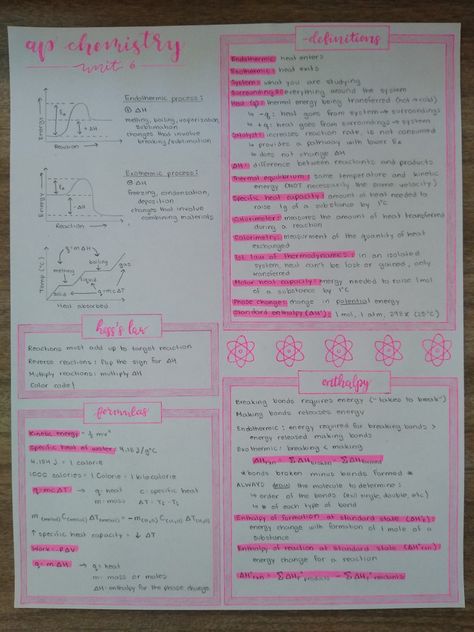 ap chemistry
unit 6
Energy
Ea
+ΔH
Reaction
Endothermic process:
⊕ ΔH
melting, boiling, vaporization,
sublimation
changes that involve
breaking/sublimation
Energy
Ea
-ΔH
Reaction
Exothermic process:
⊖ ΔH
freezing, condensation,
deposition
changes that involve
combining materials
Temp (°C)
q=mΔH
boiling
gas
melting
liquid
solid
q=mcΔT
Heat absorbed
hess's law
Reactions must add up to target reaction
Reverse reactions: flip the sign for ΔH
Multiply reactions: multiply ΔH
Color code!
formulas
Kinetic energy = ½ mv²
Specific heat of water: 4.184 J/g°C
4.184 J = 1 calorie
1000 calories = 1 Calorie = 1 kilocalorie
q=mcΔT → q: heat c: specific heat
m: mass ΔT: Tf - Ti
↑ specific heat capacity = ↓ ΔT
Work = -PΔV
q=mΔH → q: heat
m: mass or moles
ΔH: enthalpy for the phase change
definitions
Endothermic: heat enters
Exothermic: heat exits
System: what you are studying
Surroundings: everything around the system
Heat (q): thermal energy being transferred (hot→cold)
↳ -q: heat goes from system → surroundings
↳ +q: heat goes from surroundings → system
Catalyst: increases reaction rate, is not consumed
↳ provides a pathway with lower Ea
↳ does not change ΔH
ΔH: difference between reactants and products
Thermal equilibrium: same temperature and kinetic
energy (NOT necessarily the same velocity)
Specific heat capacity: amount of heat needed to
raise 1g of a substance by 1°C
Calorimeter: measures the amount of heat transferred
during a reaction
Calorimetry: measurement of the quantity of heat
exchanged
1st law of thermodynamics: in an isolated
system, heat can't be lost or gained, only
transferred
Molar heat capacity: energy needed to raise 1mol
of a substance by 1°C
Phase changes: change in potential energy
Standard enthalpy (ΔH°): 1 mol, 1 atm, 298K (25°C)
enthalpy
Breaking bonds requires energy ("takes to break")
Making bonds releases energy
Endothermic: energy required for breaking bonds >
energy released making bonds
Exothermic: breaking < making
*bonds broken minus bonds formed*
ALWAYS draw the molecule to determine:
↳ order of the bonds (ex: single, double, etc)
↳ # of each type of bond
Enthalpy of formation at standard state (ΔH°f):
energy change with formation of 1 mole of a
substance
Enthalpy of reaction at standard state (ΔH°rxn):
energy change for a reaction
ΔH°rxn = ΣΔHf°products - ΣΔHf°reactants